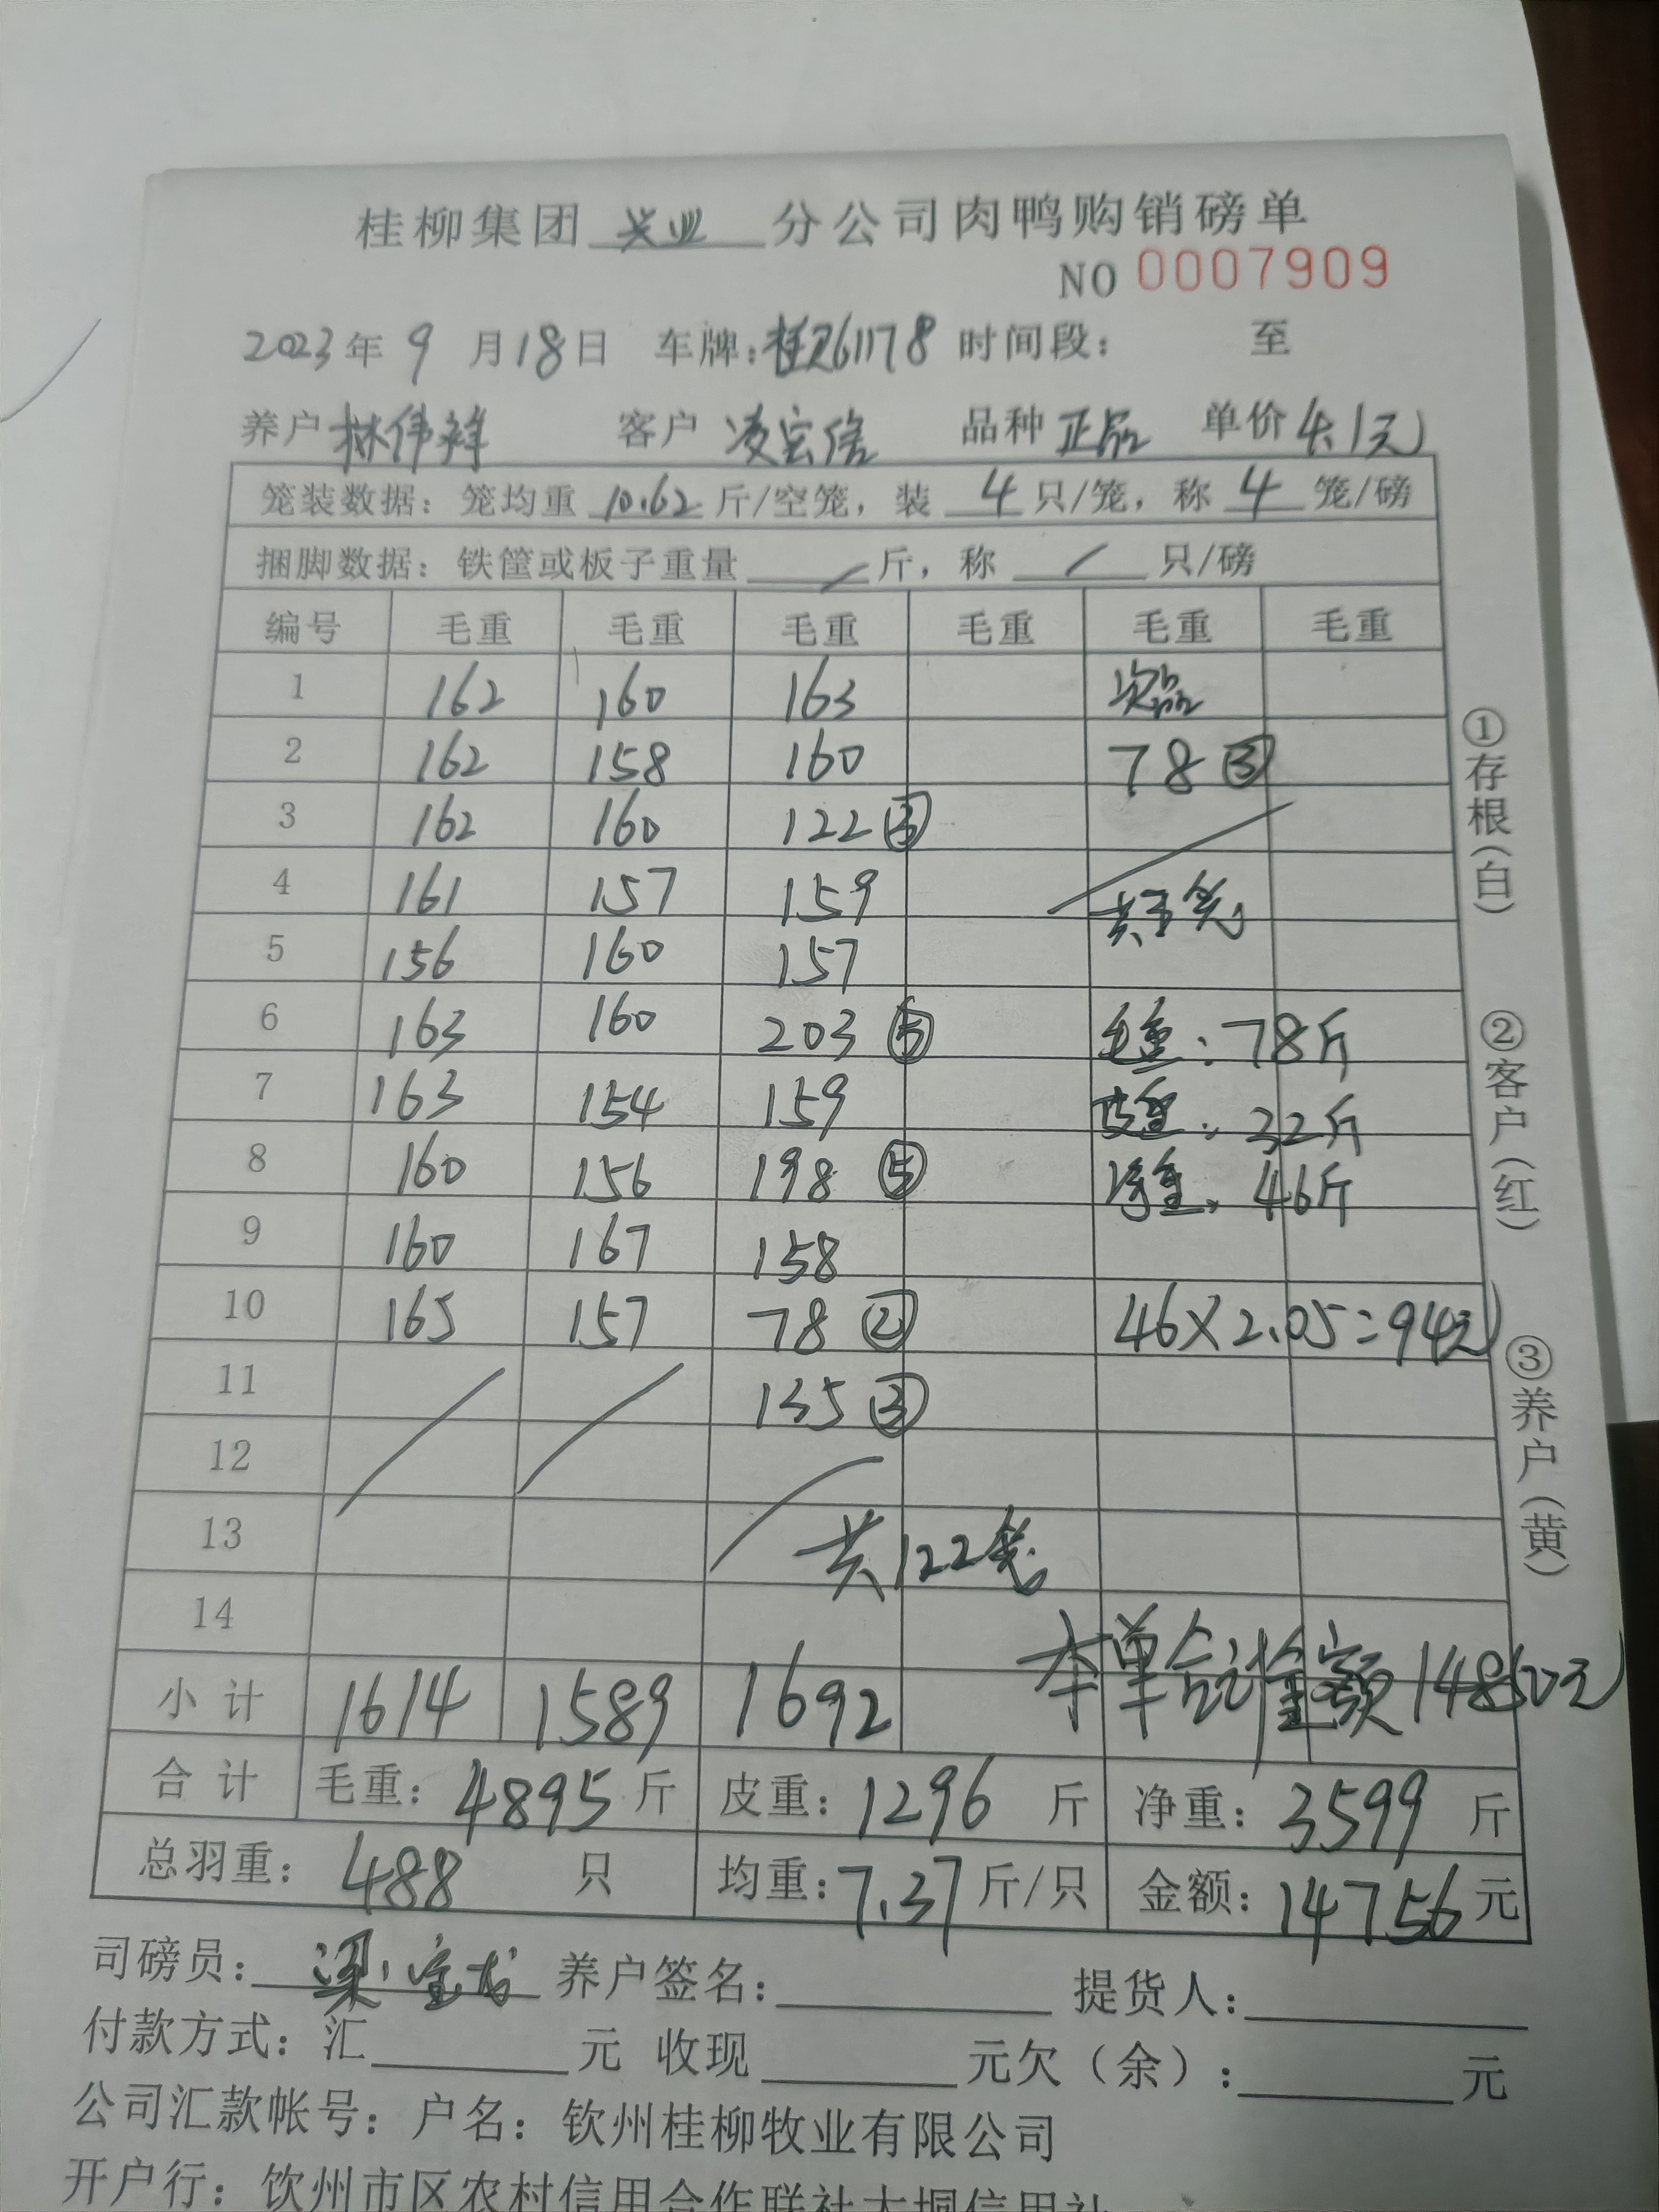 桂柳集团 兴业 分公司肉鸭购销磅单
NO 0007909
2023年 9 月18日 车牌:桂R61178 时间段: 至
养户 林伟祥 客户 凌宏信 品种 正品 单价 4.1元
笼装数据: 笼均重 10.62 斤/空笼, 装 4 只/笼, 称 4 笼/磅
捆脚数据: 铁筐或板子重量 / 斤, 称 / 只/磅
编号 毛重 毛重 毛重 毛重 毛重 毛重
1 162 160 163 次品
2 162 158 160 78 ③
3 162 160 122 ③
4 161 157 159 共3笼
5 156 160 157
6 163 160 203 ⑤ 毛重: 78斤
7 163 154 159 皮重: 32斤
8 160 156 198 ⑤ 净重: 46斤
9 160 167 158
10 165 157 78 ② 46×2.05=94元
11 135 ③
12
13 共122笼
14
小计 1614 1589 1692 本单合计金额14850元
合计 毛重: 4895 斤 皮重: 1296 斤 净重: 3599 斤
总羽重: 488 只 均重: 7.37 斤/只 金额: 14756 元
司磅员: 梁 养户签名: 提货人:
付款方式: 汇 元 收现 元欠(余): 元
公司汇款帐号: 户名: 钦州桂柳牧业有限公司
开户行: 钦州市区农村信用合作联社大垌信用社
①存根(白)
②客户(红)
③养户(黄)